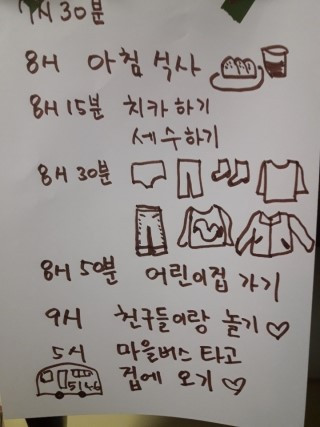 7시 30분
8시 아침 식사
8시 15분 치카하기
세수하기
8시 30분
8시 50분 어린이집 가기
9시 친구들이랑 놀기♡
5시 마을버스 타고
집에 오기♡